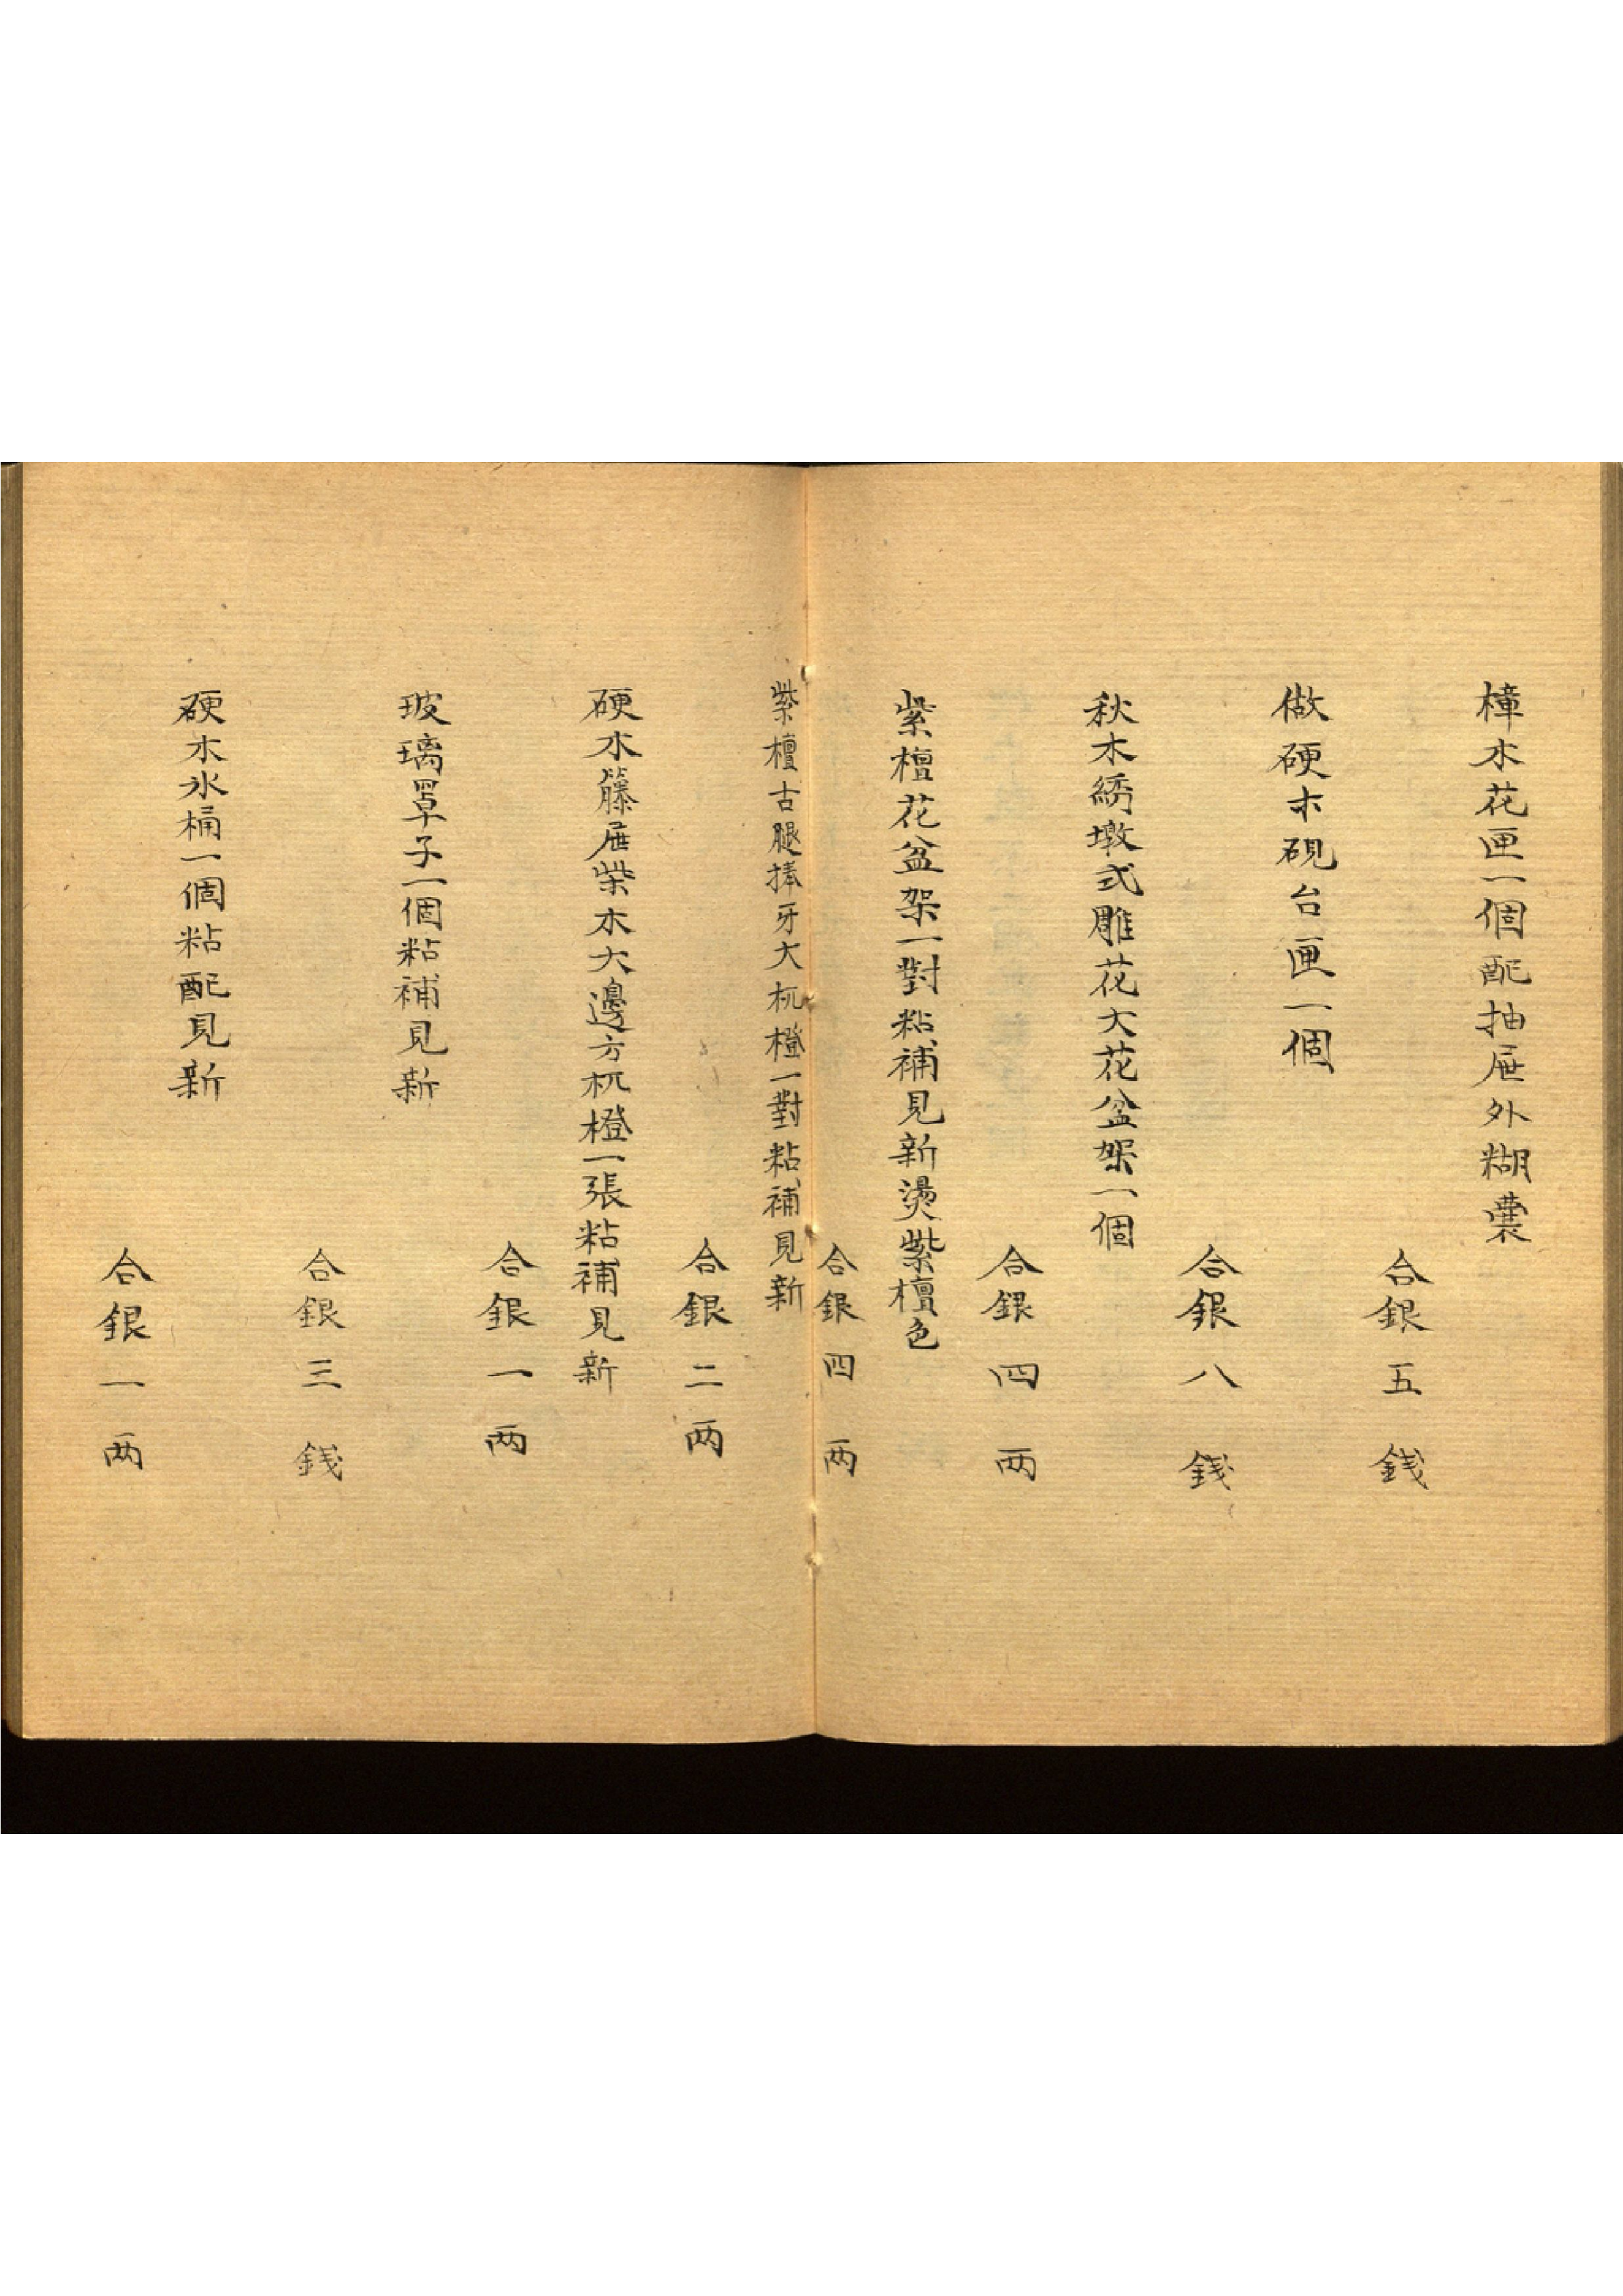 樟木花匣一個配抽屉外糊囊
合銀五錢
做硬木硯台匣一個
合銀八錢
秋木綉墩式雕花大花盆架一個
合銀四两
紫檀花盆架一對粘補見新燙紫檀色
合銀四两
紫檀古腿捧牙大杌橙一對粘補見新
合銀二两
硬木籐屉柴木大邊方杌橙一張粘補見新
合銀一两
玻璃罩子一個粘補見新
合銀三錢
硬木氷桶一個粘配見新
合銀一两